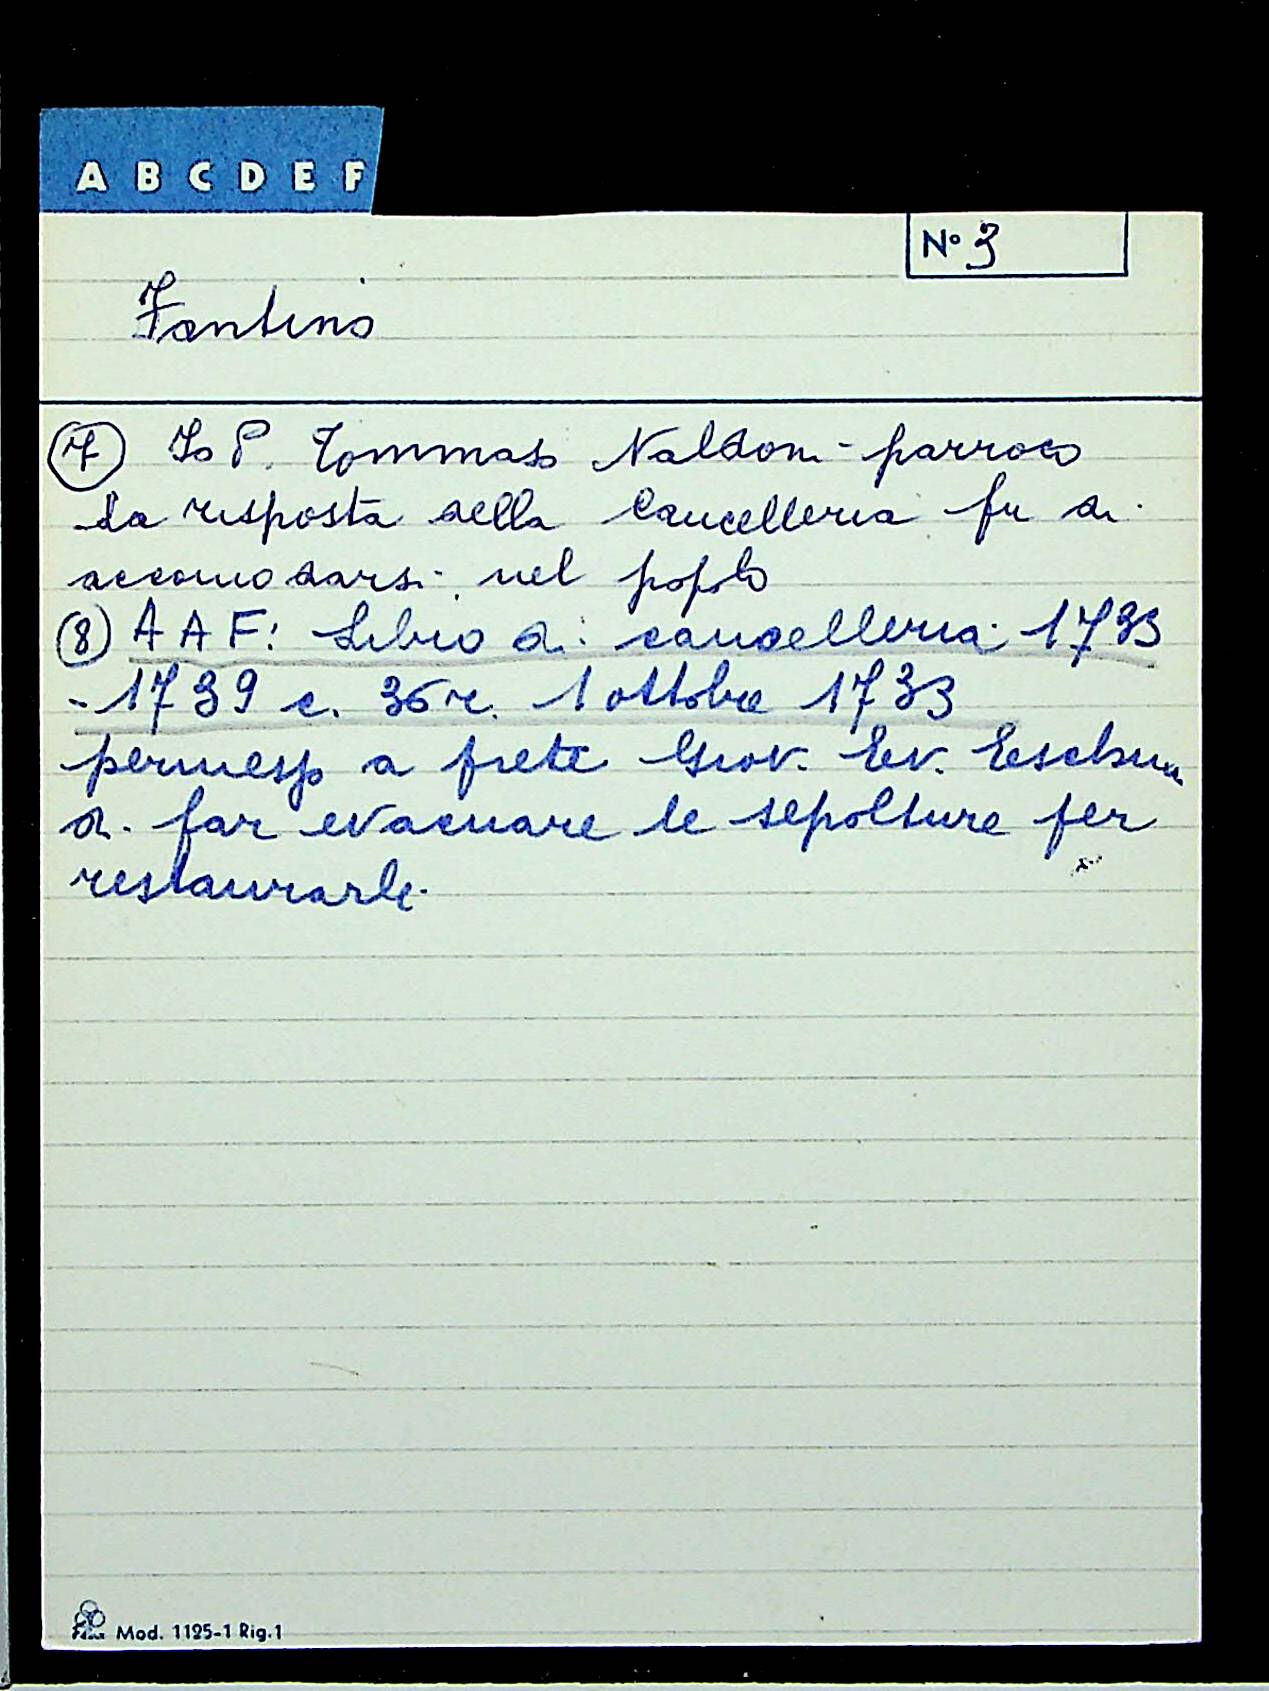 A B C D E F
N° 3
Fantino
7 Io P. Tommaso Naldoni - parroco
La risposta della Cancelleria fu di
accomodarsi nel popolo
8 A A F: Libro di cancelleria 1733
- 1739 c. 36r. 1 ottobre 1733
permesso a frete Giov. Ev.
di far evacuare le sepolture per
restaurarle.
Mod. 1125-1 Rig.1